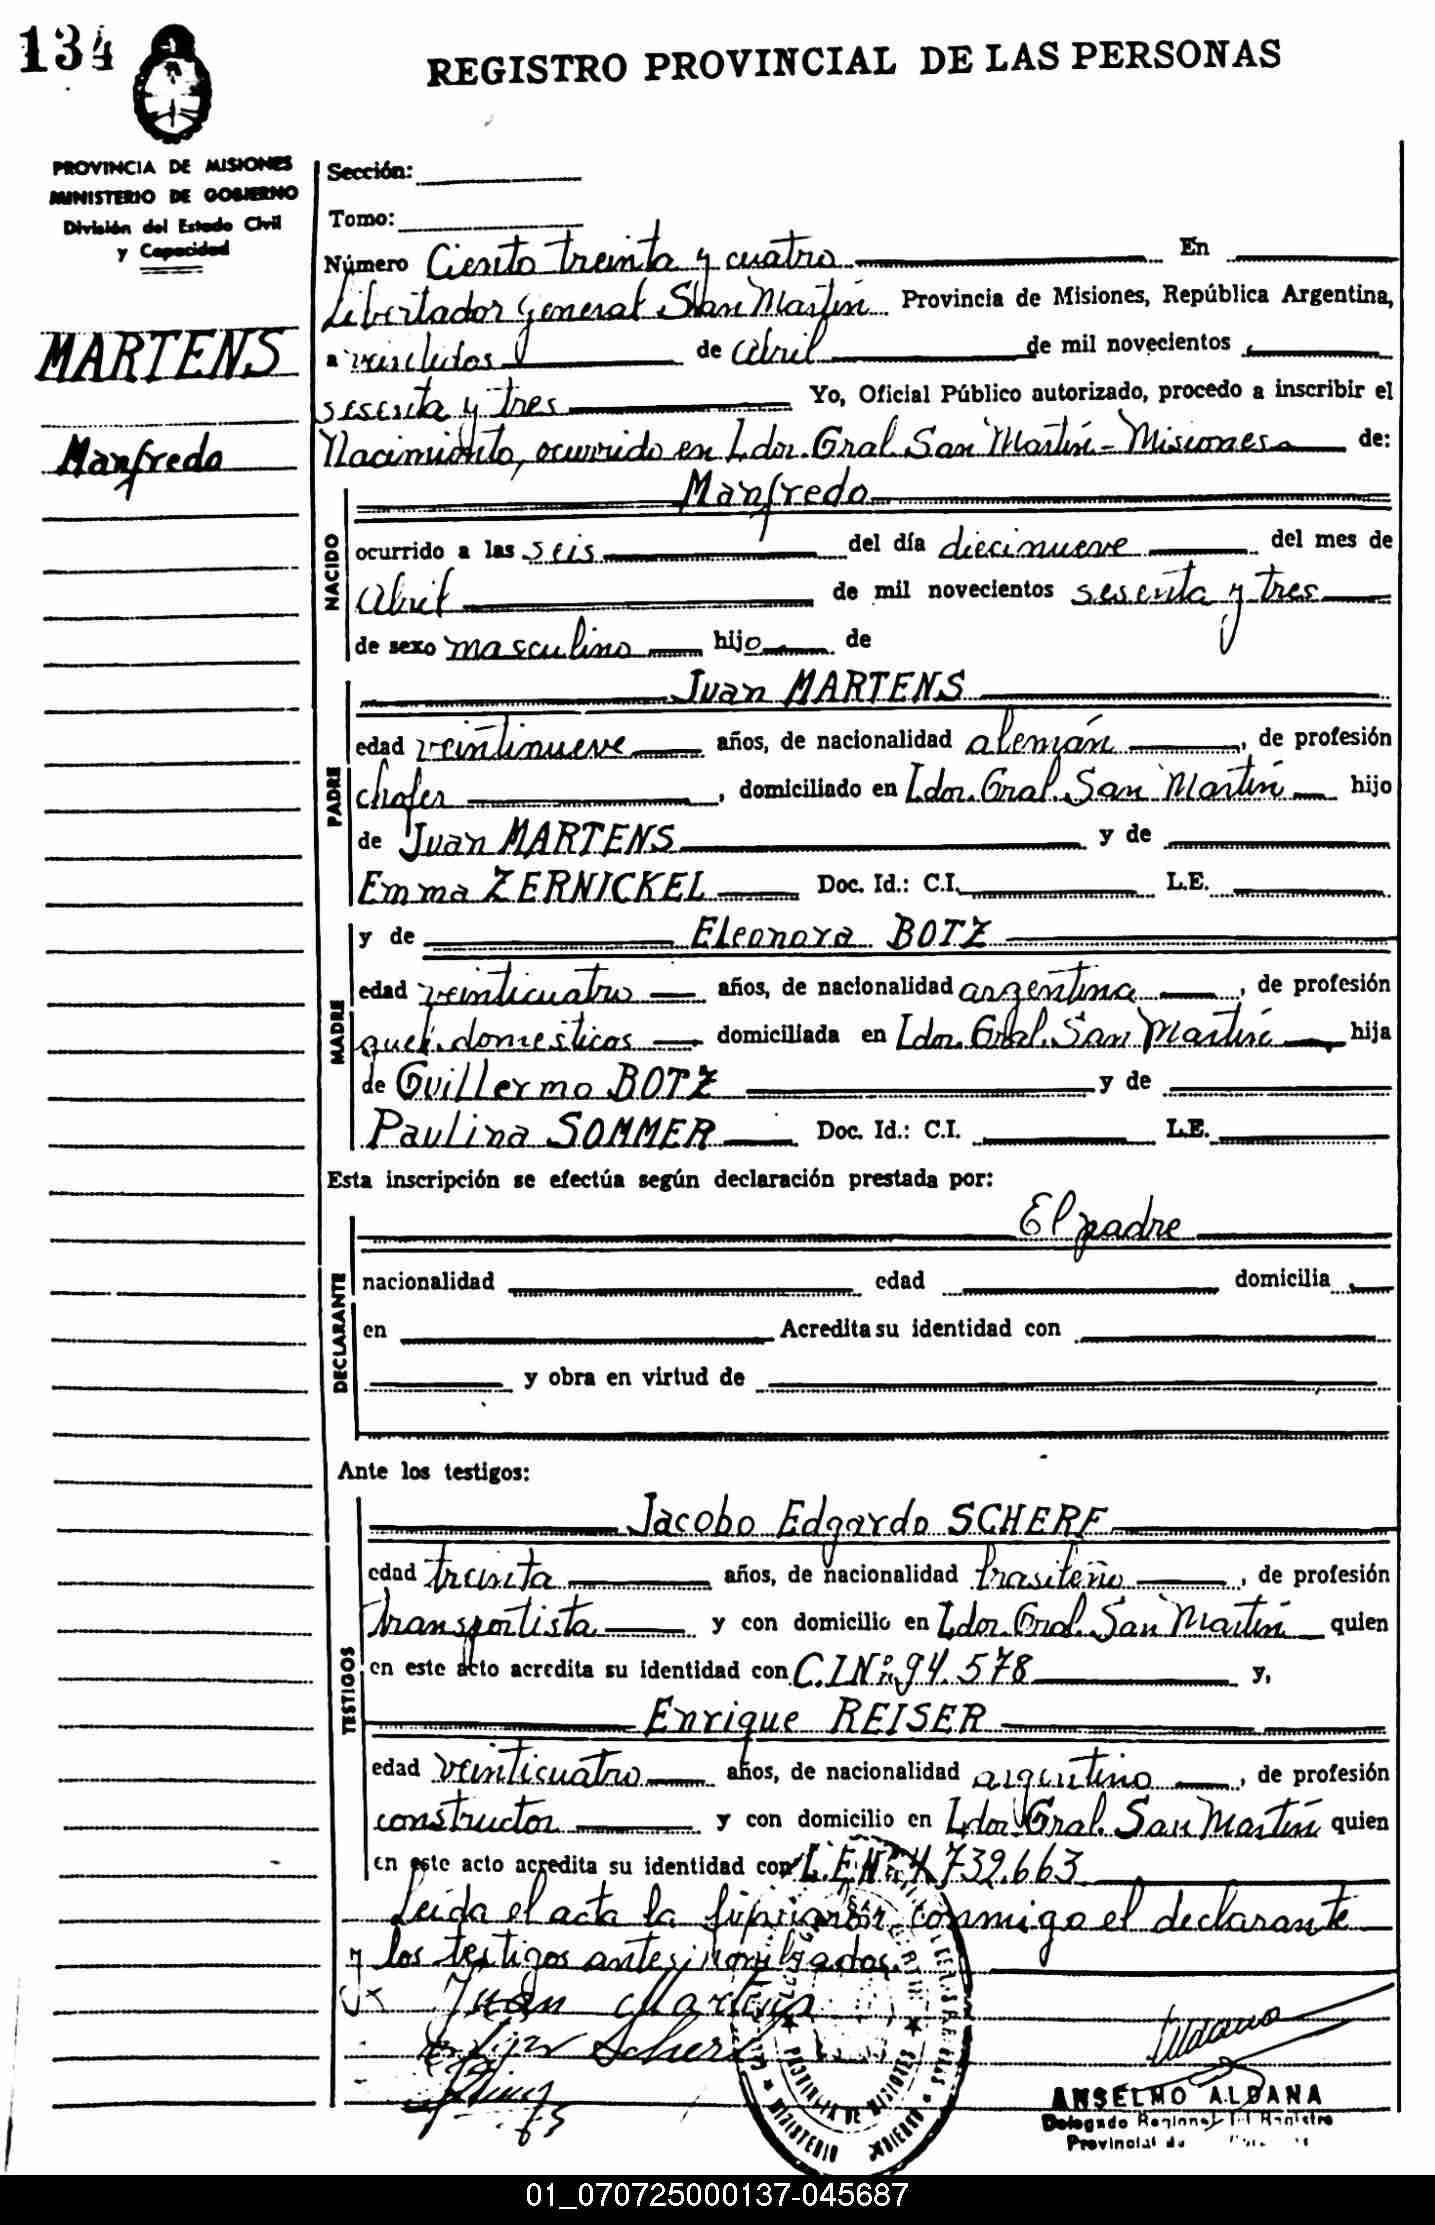 134
REGISTRO PROVINCIAL DE LAS PERSONAS
PROVINCIA DE MISIONES
MINISTERIO DE GOBIERNO
División del Estado Civil
y Capacidad
MARTENS
Manfredo
Sección:
Tomo:
Número Ciento treinta y cuatro En
Libertador General San Martín Provincia de Misiones, República Argentina,
a veintidos de abril de mil novecientos
sesenta y tres Yo, Oficial Público autorizado, procedo a inscribir el
Nacimiento, ocurrido en Ldor. Gral San Martín - Misiones de:
NACIDO
Manfredo
ocurrido a las seis del día diecinueve del mes de
abril de mil novecientos sesenta y tres
de sexo masculino hijo de
PADRE
Juan MARTENS
edad veintinueve años, de nacionalidad alemán, de profesión
chofer, domiciliado en Ldor. Gral. San Martín hijo
de Juan MARTENS y de
Emma ZERNICKEL Doc. Id.: C.I. L.E.
MADRE
y de Eleonora BOTZ
edad veinticuatro años, de nacionalidad argentina, de profesión
queh. domesticos domiciliada en Ldor. Gral. San Martín hija
de Guillermo BOTZ y de
Paulina SOMMER Doc. Id.: C.I. L.E.
Esta inscripción se efectúa según declaración prestada por:
DECLARANTE
El padre
nacionalidad edad domicilia
en Acredita su identidad con
y obra en virtud de
Ante los testigos:
TESTIGOS
Jacobo Edgardo SCHERF
edad treinta años, de nacionalidad brasileño, de profesión
transportista y con domicilio en Ldor. Gral. San Martín quien
en este acto acredita su identidad con C.I.Nº 94.578 y,
Enrique REISER
edad veinticuatro años, de nacionalidad argentino, de profesión
constructor y con domicilio en Ldor. Gral. San Martín quien
en este acto acredita su identidad con L.E.Nº 4.739.663
Leida el acta la conmigo el declarante
y los testigos antes nombrados.
Juan Martens
Scherf
ANSELMO ALDANA
Delegado Regional del Registro
Provincial de
PROVINCIA DE MISIONES
MINISTERIO GOBIERNO
01_070725000137-045687